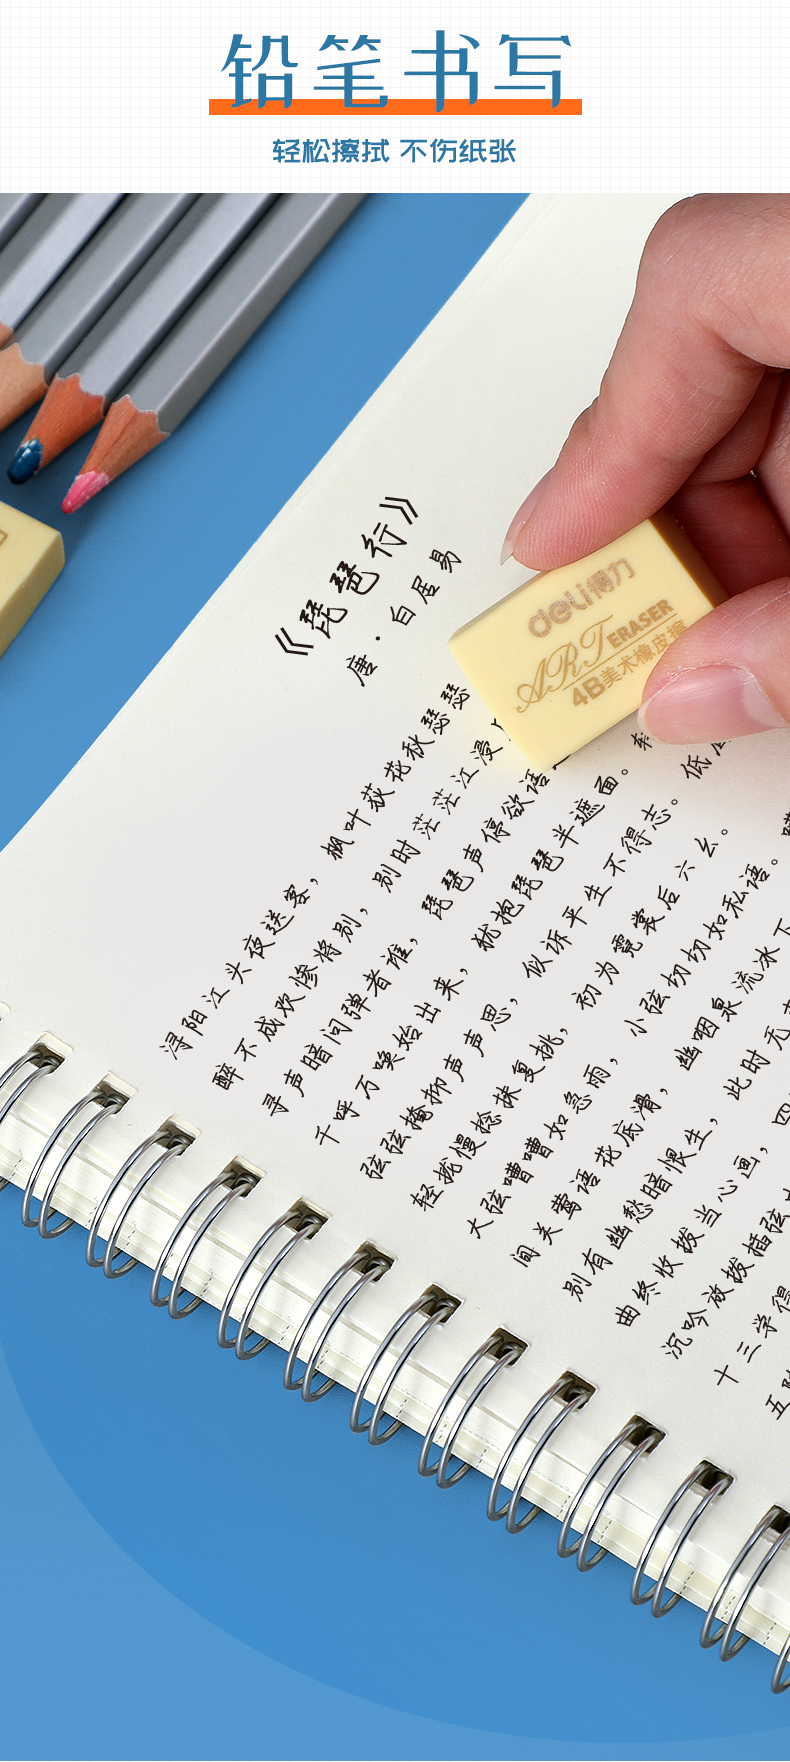 铅笔书写
轻松擦拭 不伤纸张
《琵琶行》
唐·白居易
浔阳江头夜送客，枫叶荻花秋瑟瑟
醉不成欢惨将别，别时茫茫江浸
寻声暗问弹者谁，琵琶声停欲语
千呼万唤始出来，犹抱琵琶半遮面。
弦弦掩抑声声思，似诉平生不得志。低
轻拢慢捻抹复挑，初为霓裳后六幺。
大弦嘈嘈如急雨，小弦切切如私语。
间关莺语花底滑，幽咽泉流冰下
别有幽愁暗恨生，此时无
曲终收拨当心画，四
沉吟放拨插弦
十三学得
五
deli得力
ART ERASER
4B美术橡皮擦